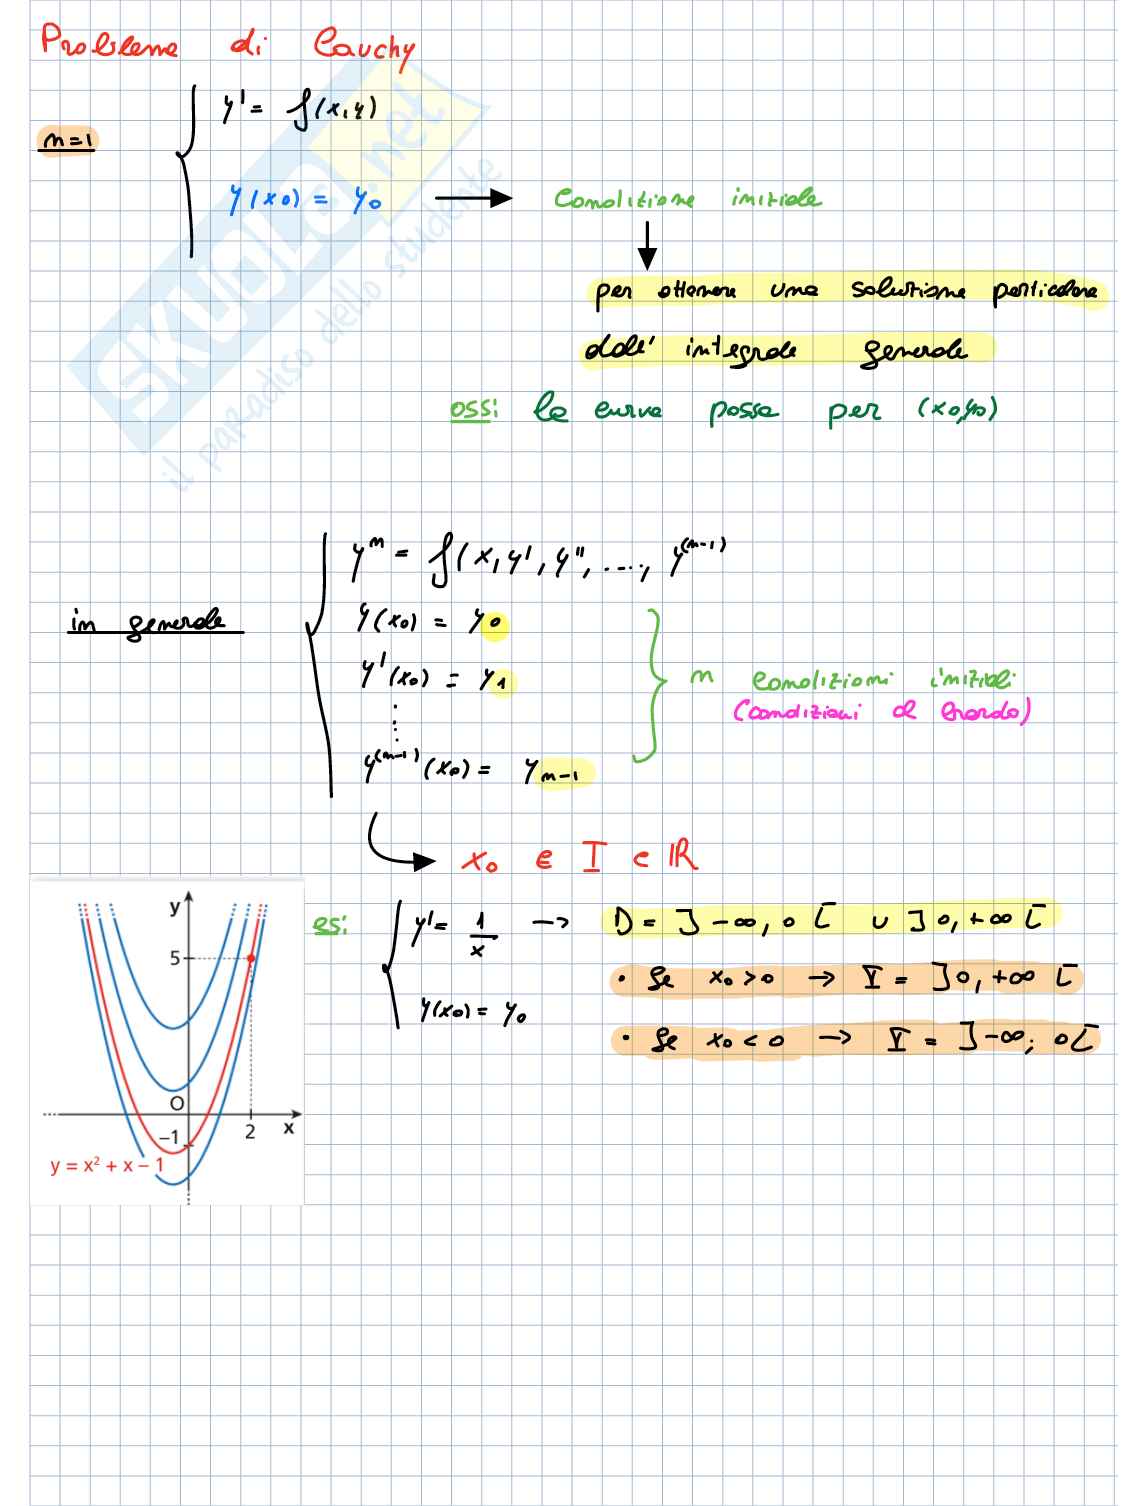 Problema di Cauchy
n=1
y' = f(x,y)
y(x0) = y0 → Condizione iniziale
per ottenere una soluzione particolare
dall' integrale generale
oss: la curva passa per (x0,y0)
SKUOLA.net
il paradiso dello studente
in generale
y^n = f(x,y',y'',....,y^(n-1)
y(x0) = y0
y'(x0) = y1
y^(n-1)(x0) = yn-1
n condizioni iniziali
(condizioni al bordo)
x0 ∈ I ⊂ ℝ
es:
y' = 1/x → D = ]-∞,0[ ∪ ]0,+∞[
y(x0) = y0
• Se x0>0 → I = ]0,+∞[
• Se x0<0 → I = ]-∞; 0[
y
5
O
-1
2
x
y = x² + x – 1